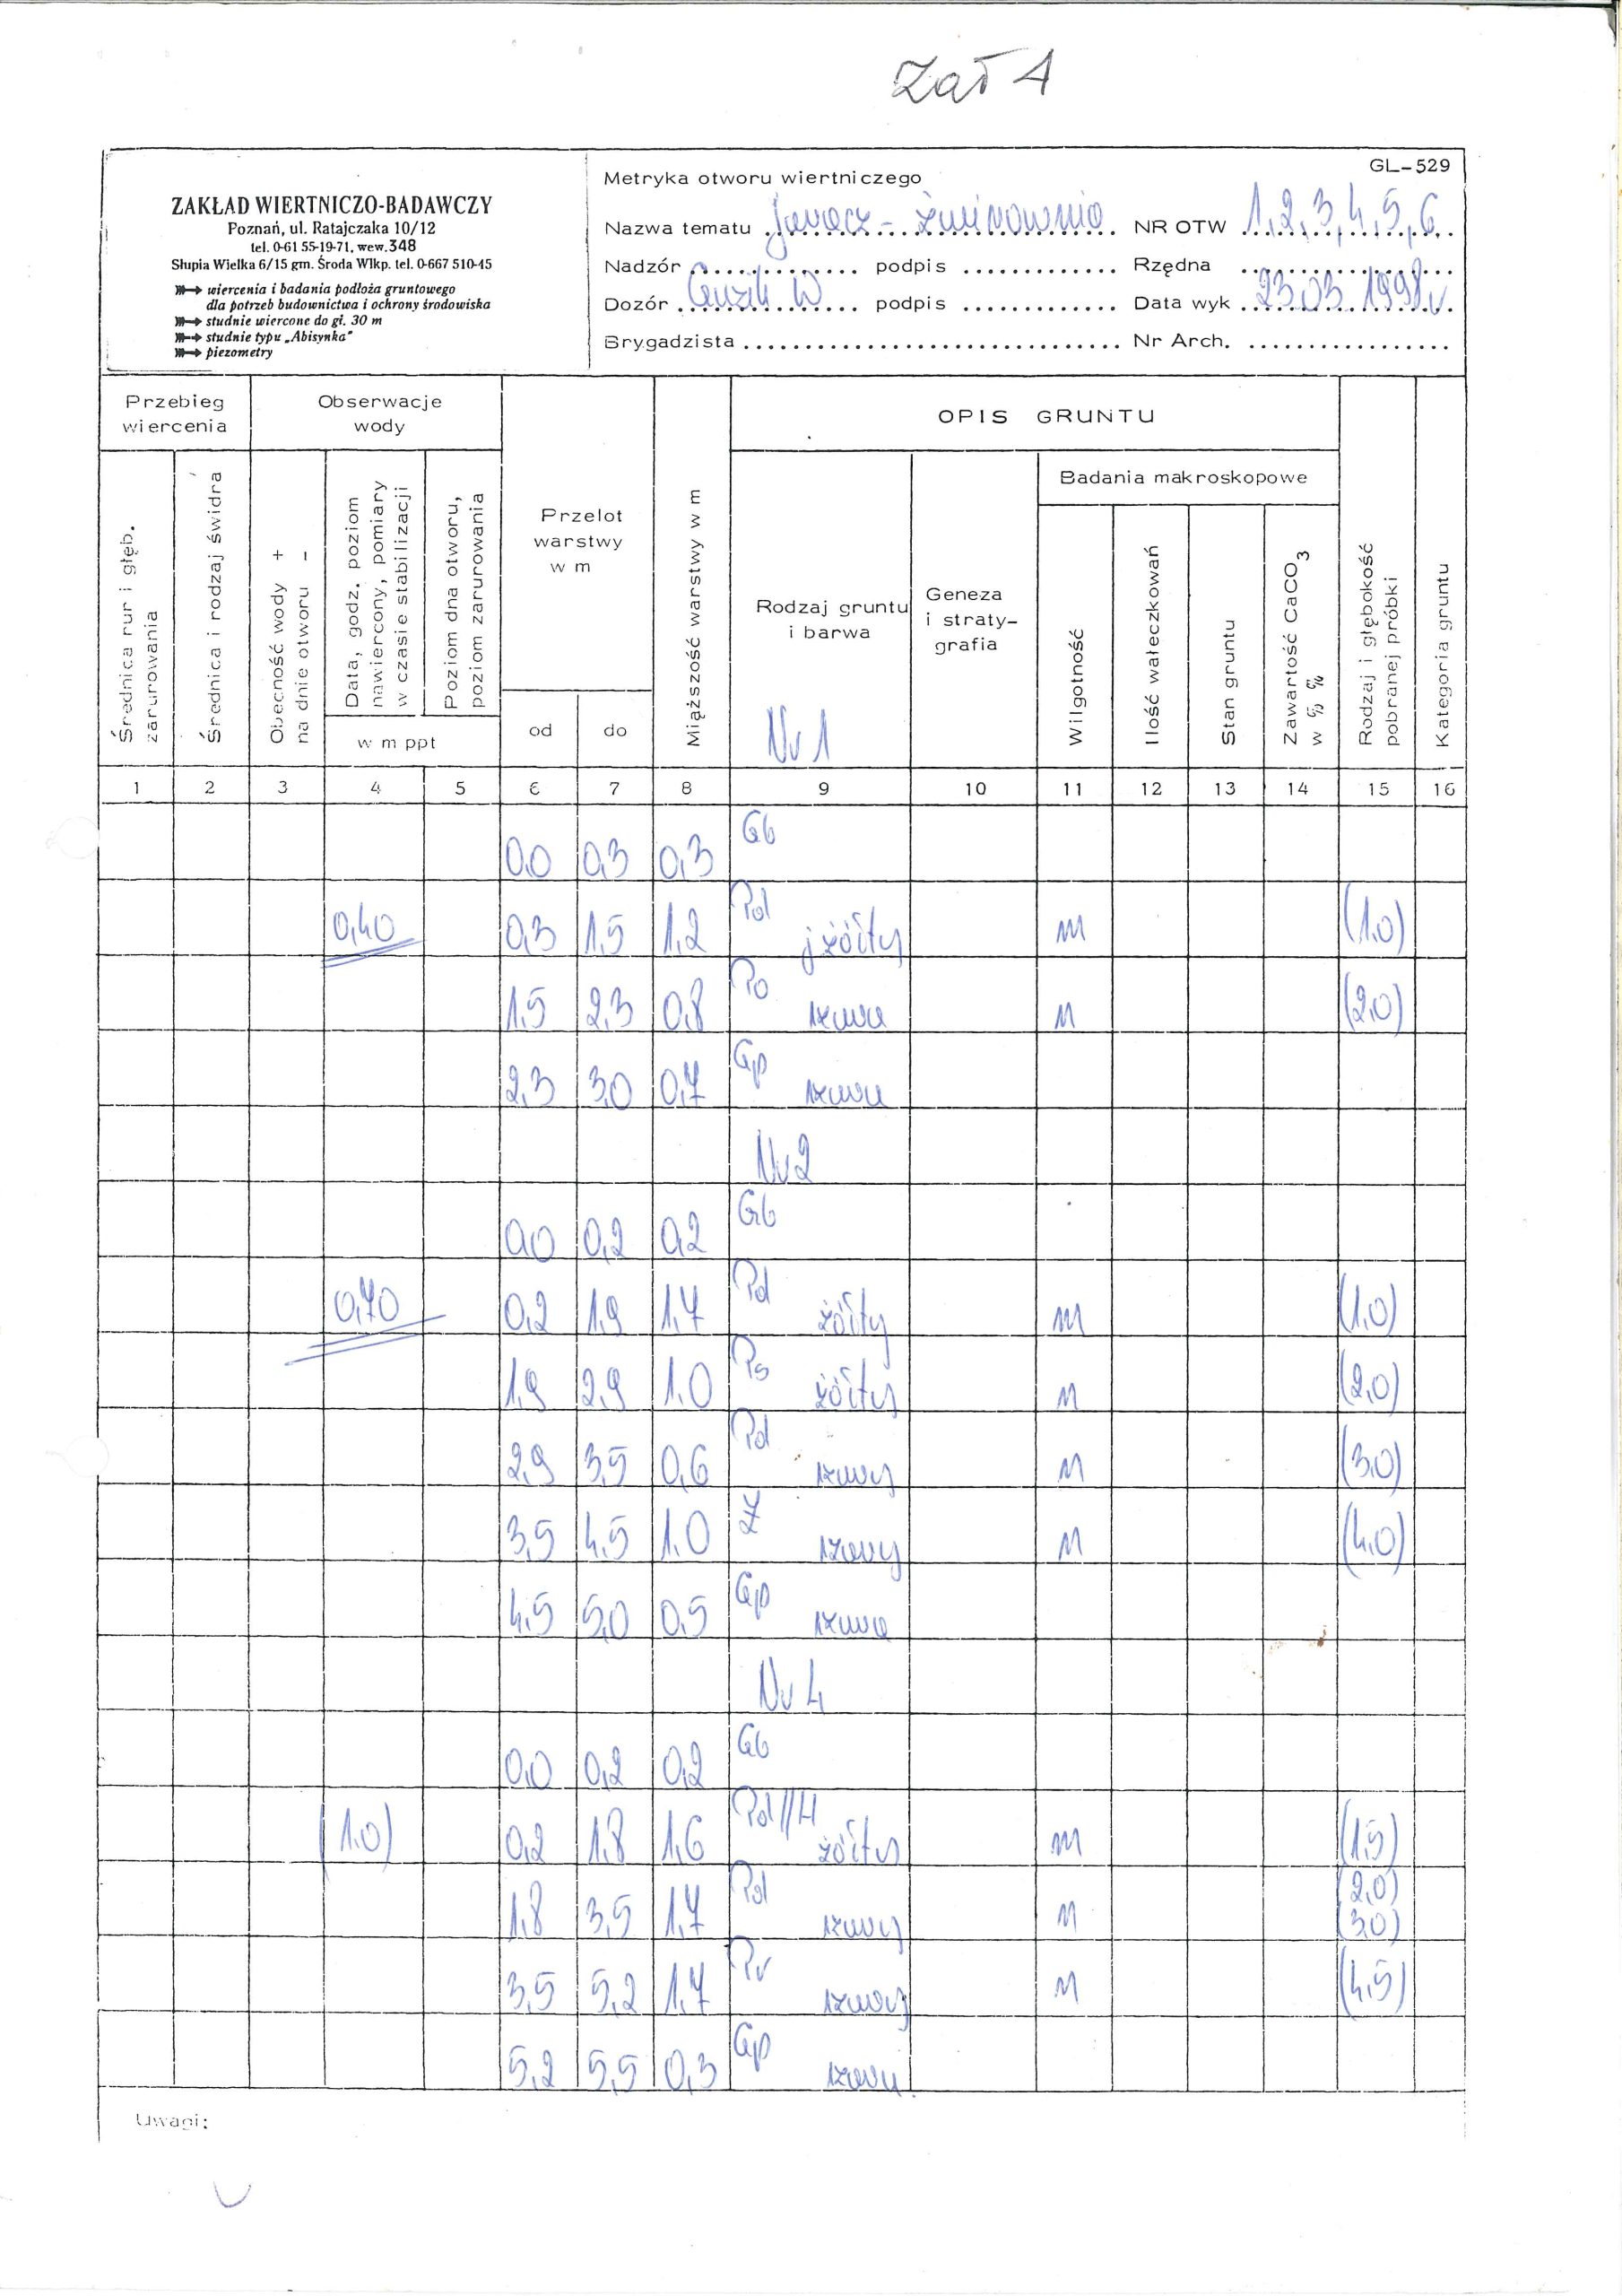 Zał 1
GL-529
ZAKŁAD WIERTNICZO-BADAWCZY
Poznań, ul. Ratajczaka 10/12
tel. 0-61 55-19-71, wew.348
Słupia Wielka 6/15 gm. Środa Wlkp. tel. 0-667 510-45
wiercenia i badania podłoża gruntowego
dla potrzeb budownictwa i ochrony środowiska
studnie wiercone do gł. 30 m
studnie typu „Abisynka"
piezometry
Metryka otworu wiertniczego
Nazwa tematu Janacz - Żwirownia NR OTW 1,2,3,4,5,6
Nadzór podpis Rzędna
Dozór Guzik W podpis Data wyk 23.03.1998r
Brygadzista Nr Arch.
Przebieg wiercenia
Obserwacje wody
OPIS GRUNTU
Badania makroskopowe
Średnica rur i głęb. zarurowania
Średnica i rodzaj świdra
Obecność wody +
na dnie otworu -
Data, godz. poziom nawiercony, pomiary w czasie stabilizacji
Poziom dna otworu, poziom zarurowania
w m ppt
Przelot warstwy w m
od do
Miąższość warstwy w m
Rodzaj gruntu i barwa
Nr 1
Geneza i straty-grafia
Wilgotność
Ilość wałeczkowań
Stan gruntu
Zawartość CaCO3 w % %
Rodzaj i głębokość pobranej próbki
Kategoria gruntu
1 2 3 4 5 6 7 8 9 10 11 12 13 14 15 16
0,0 0,3 0,3 Gb
0,40 0,3 1,5 1,2 Pd j żółty m (1,0)
1,5 2,3 0,8 Po szara m (2,0)
2,3 3,0 0,7 Gp szara
Nr 2
0,0 0,2 0,2 Gb
0,70 0,2 1,9 1,7 Pd żółty m (1,0)
1,9 2,9 1,0 Ps żółty m (2,0)
2,9 3,5 0,6 Pd szary m (3,0)
3,5 4,5 1,0 Ż szary m (4,0)
4,5 5,0 0,5 Gp szara
Nr 4
0,0 0,2 0,2 Gb
(1,0) 0,2 1,8 1,6 Pd//H żółty m (1,5)
1,8 3,5 1,7 Pd szary m (2,0) (3,0)
3,5 5,2 1,7 Pr szary m (4,5)
5,2 5,5 0,3 Gp szara
Uwagi: